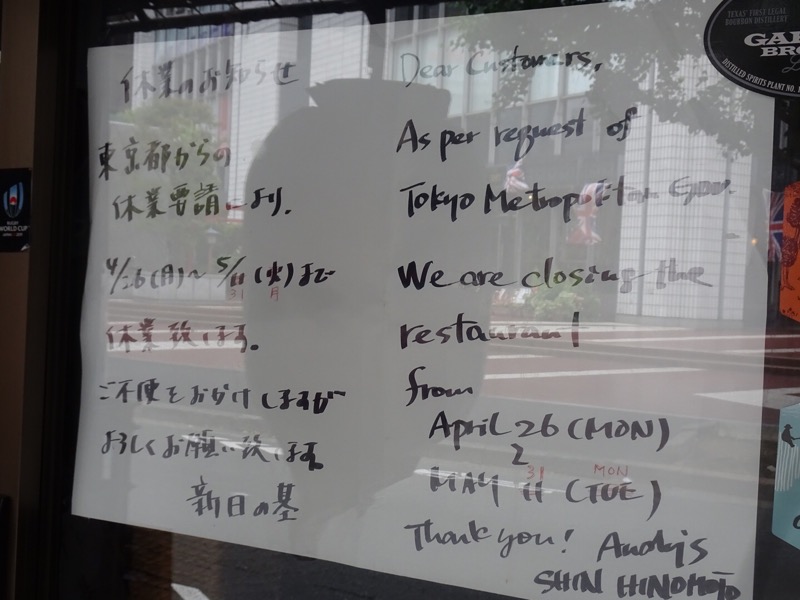 休業のお知らせ
東京都からの
休業要請により、
4/26(月)〜5/11(火)まで
31 月
休業致します。
ご不便をおかけしますが
よろしくお願い致します。
新日の基
Dear Customers,
As per request of
Tokyo Metropolitan Gov.
We are closing the
restaurant
from
April 26 (MON)
2
31 MON
MAY 11 (TUE)
Thank you! Andy's
SHIN HINOMOTO
TEXAS' FIRST LEGAL
BOURBON DISTILLERY
GAR
BRO
DISTILLED SPIRITS PLANT NO.
RUGBY
WORLD CUP